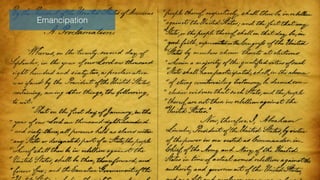 Emancipation
By the President of the United States of America
A Proclamation
Whereas, on the twenty-second day of
September, in the year of our Lord one thousand
eight hundred and sixty two, a proclamation
was issued by the President of the United States,
containing, among other things, the following,
to wit:
That on the first day of January, in the
year of our Lord one thousand eight hundred
and sixty-three, all persons held as slaves within
any State or designated part of a State, the people
whereof shall then be in rebellion against the
United States, shall be then, thenceforward, and
forever free; and the Executive Government of the
people thereof, respectively, shall then be in rebellion
against the United States; and the fact that any
State, or the people thereof, shall on that day be, in
good faith, represented in the Congress of the United
States by members chosen thereto at elections
wherein a majority of the qualified voters of such
State shall have participated, shall, in the absence
of strong countervailing testimony, be deemed con-
clusive evidence that such State, and the people
thereof, are not then in rebellion against the
United States.
Now, therefore I, Abraham
Lincoln, President of the United States, by virtue
of the power in me vested as Commander-in-
Chief, of the Army and Navy, of the United
States in time of actual armed rebellion against the
authority and government of the United States,